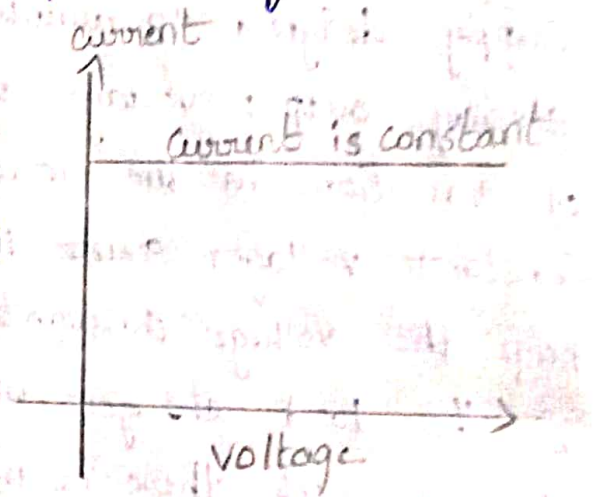 current
current is constant
voltage